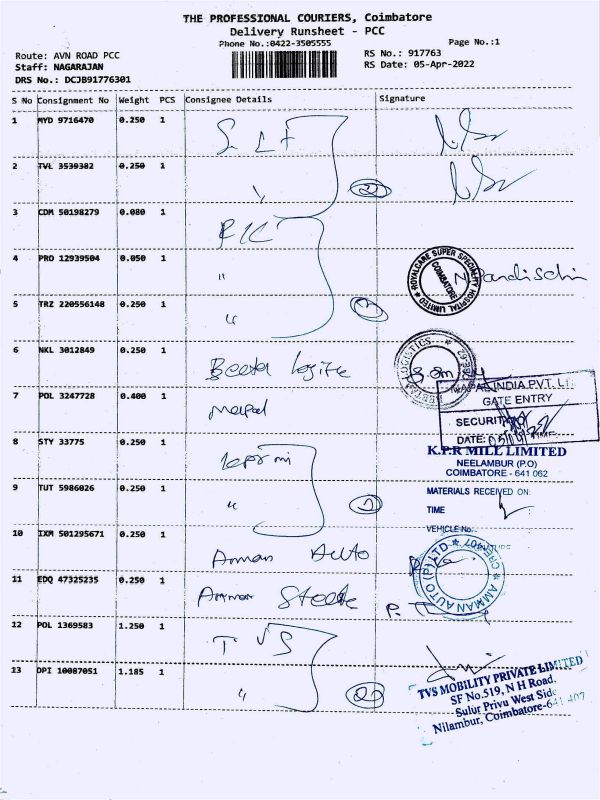 THE PROFESSIONAL COURIERS, Coimbatore
Delivery Runsheet - PCC
Phone No.:0422-3505555
Page No.:1
Route: AVN ROAD PCC
Staff: NAGARAJAN
DRS No.: DCJB91776301
RS No.: 917763
RS Date: 05-Apr-2022
S No Consignment No Weight PCS Consignee Details Signature
1 MYD 9716470 0.250 1
2 TVL 3539382 0.250 1
3 CDM 50198279 0.080 1
4 PRO 12939504 0.050 1 "
ROYALCARE SUPER SPECIALITY HOSPITAL LIMITED
COIMBATORE
5 TRZ 220556148 0.250 1 "
6 NKL 3012849 0.250 1
LOGISTICS
7 POL 3247728 0.400 1
INDIA PVT. L
GATE ENTRY
SECURITY
DATE:
8 STY 33775 0.250 1
K.P.R MILL LIMITED
NEELAMBUR (P.O)
COIMBATORE - 641 062
9 TUT 5986026 0.250 1 "
MATERIALS RECEIVED ON:
TIME
VEHICLE No.
10 IXM 501295671 0.250 1 Amman Auto
AMMAN AUTO (P) LTD
11 EDQ 47325235 0.250 1
12 POL 1369583 1.250 1 TVS
13 DPI 10087051 1.185 1 "
TVS MOBILITY PRIVATE LIMITED
SF No.519, N H Road,
Sulur Privu West Side
Nilambur, Coimbatore-641 407